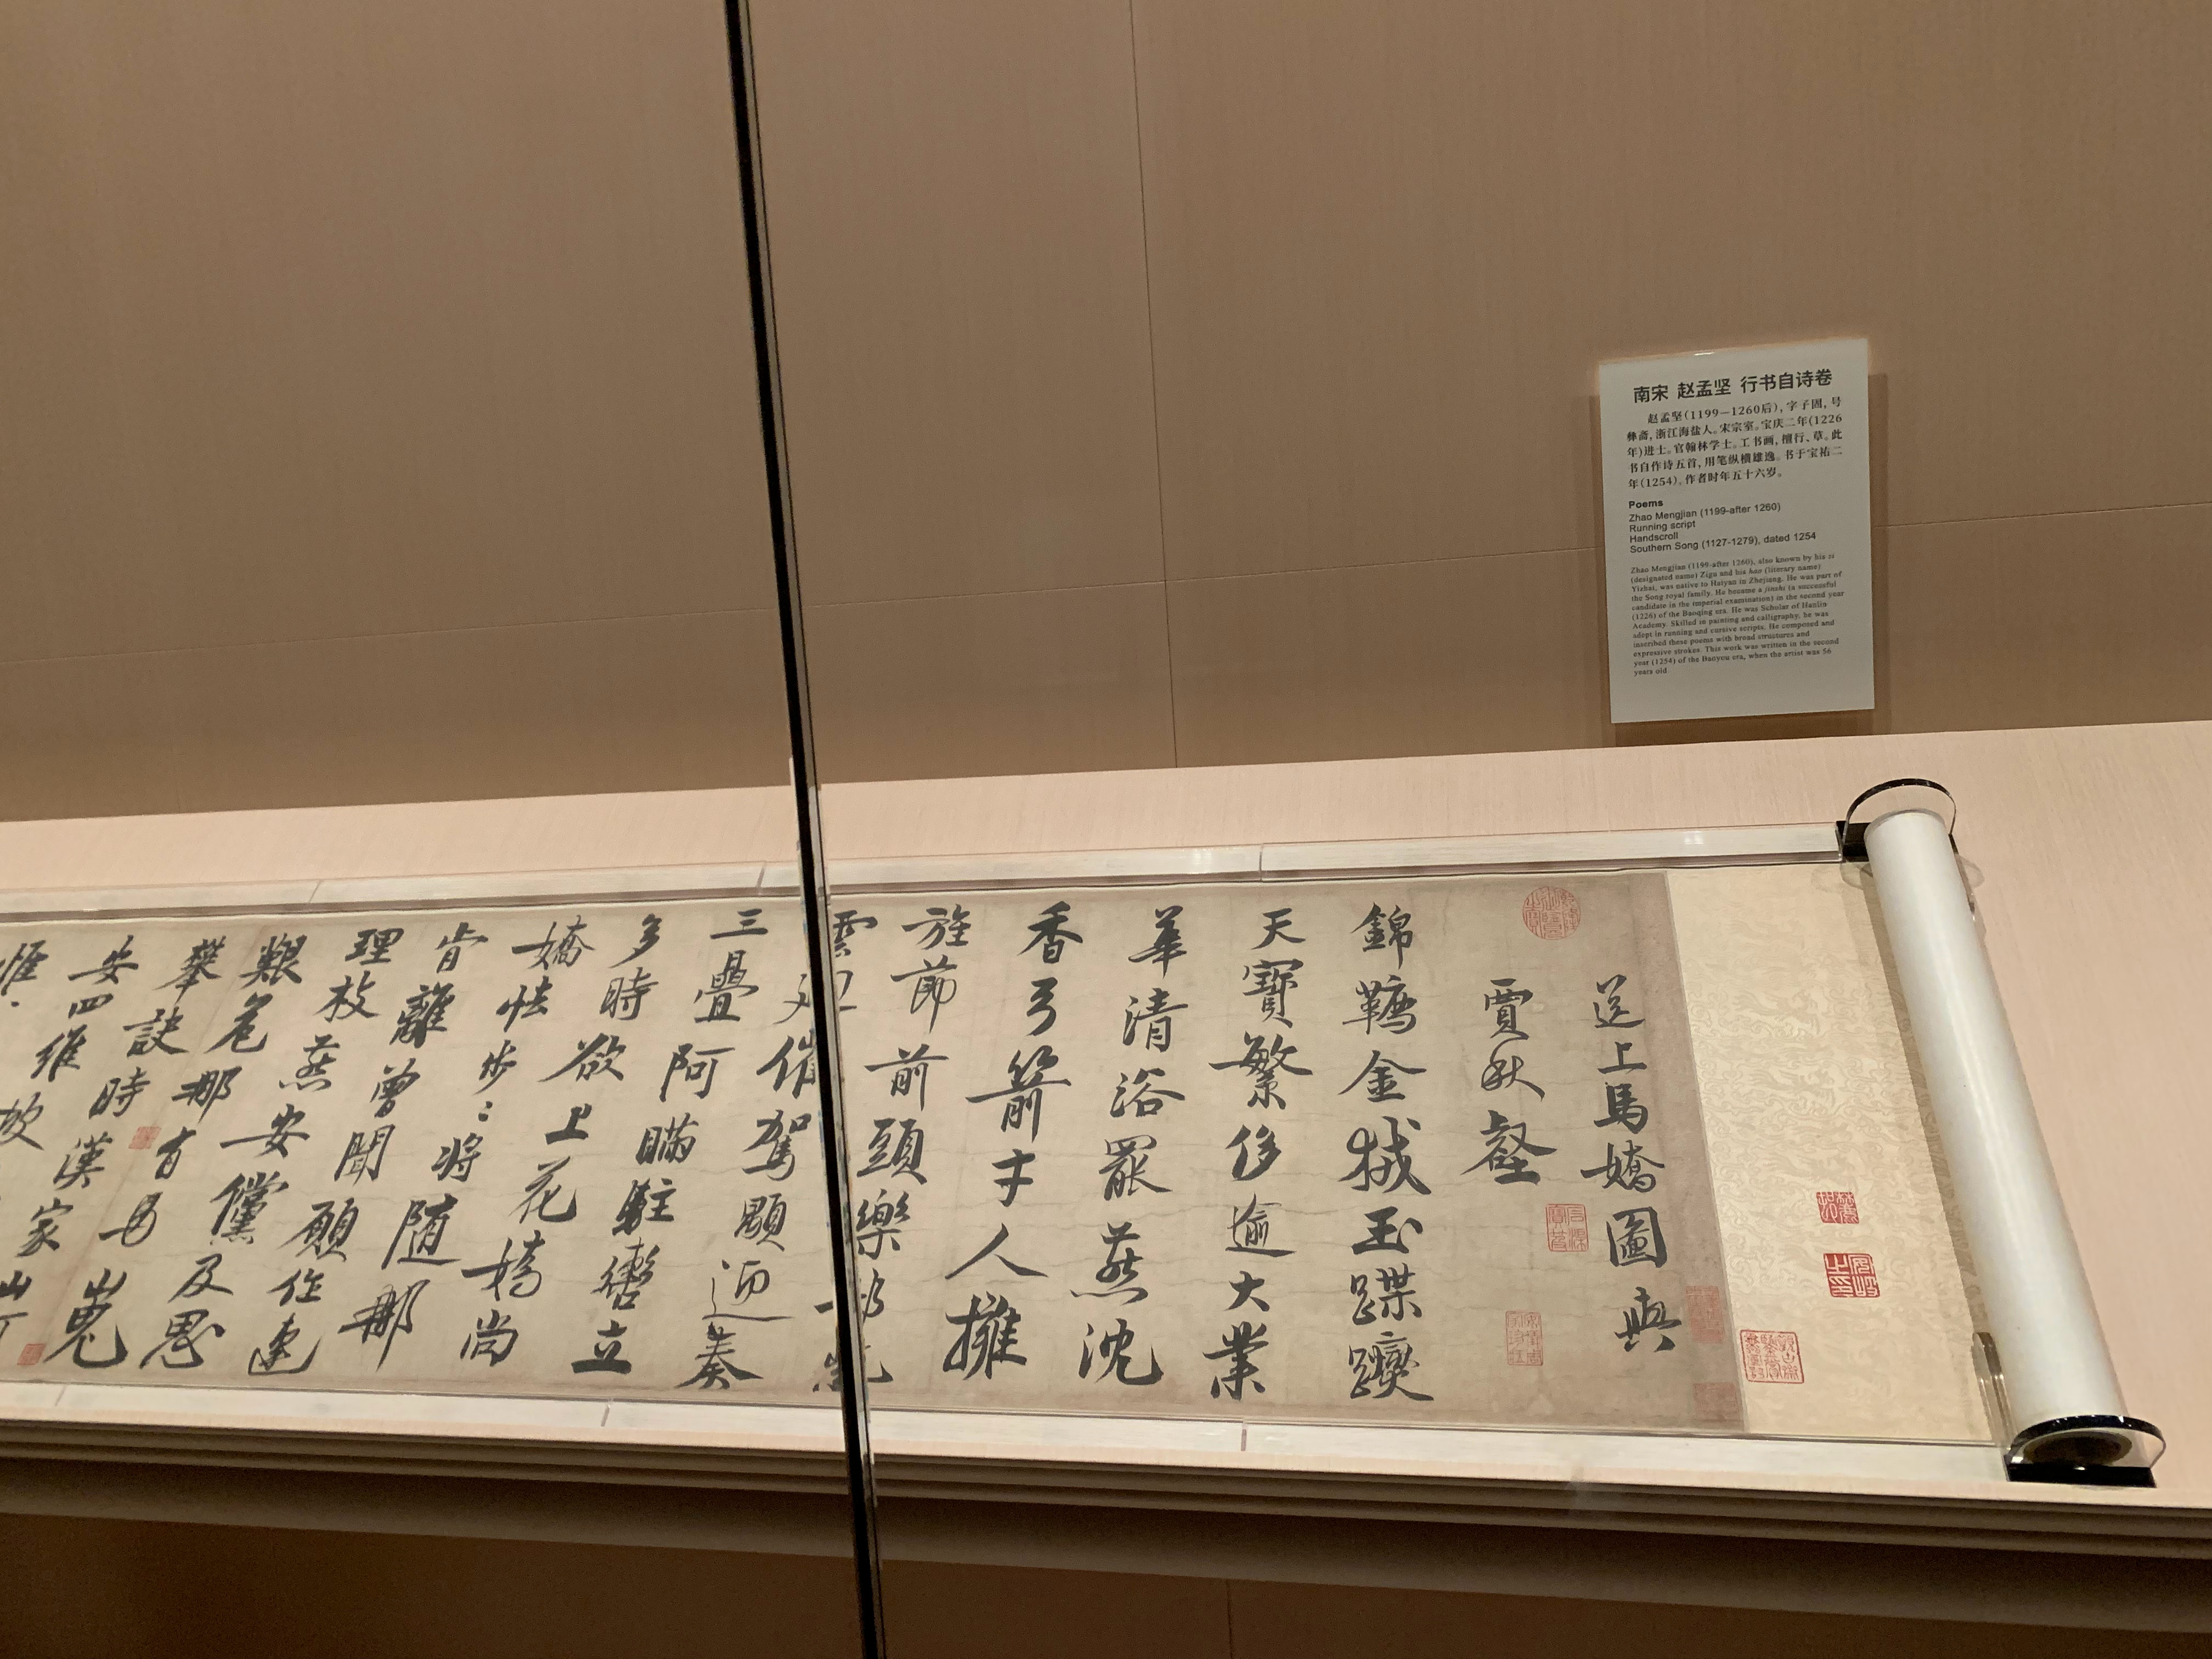 南宋 赵孟坚 行书自诗卷
赵孟坚(1199—1260后),字子固,号
彝斋,浙江海盐人。宋宗室。宝庆二年(1226
年)进士。官翰林学士。工书画,擅行、草。此
书自作诗五首,用笔纵横雄逸。书于宝祐二
年(1254)。作者时年五十六岁。
Poems
Zhao Mengjian (1199-after 1260)
Running script
Handscroll
Southern Song (1127-1279), dated 1254
Zhao Mengjian (1199-after 1260), also known by his zi
(designated name) Zigu and his hao (literary name)
Yizhai, was native to Haiyan in Zhejiang. He was part of
the Song royal family. He became a jinshi (a successful
candidate in the imperial examination) in the second year
(1226) of the Baoqing era. He was Scholar of Hanlin
Academy. Skilled in painting and calligraphy, he was
adept in running and cursive scripts. He composed and
inscribed these poems with broad structures and
expressive strokes. This work was written in the second
year (1254) of the Baoyou era, when the artist was 56
years old.
送上馬嬌圖與
賈秋壑
錦韉金𢧐玉蹀躞
天寶繁侈逾大業
華清浴罷燕沈
香弓箭才人擁
旌節前頭樂部
雲 催駕顒迎奏
三疊阿瞞駐轡立
多時欲上花
嬌怯步:將嬌尚
肯離曾聞隨那
理枝燕安願作連
艱危儻及思
攀訣那有馬嵬
安四維時漢家